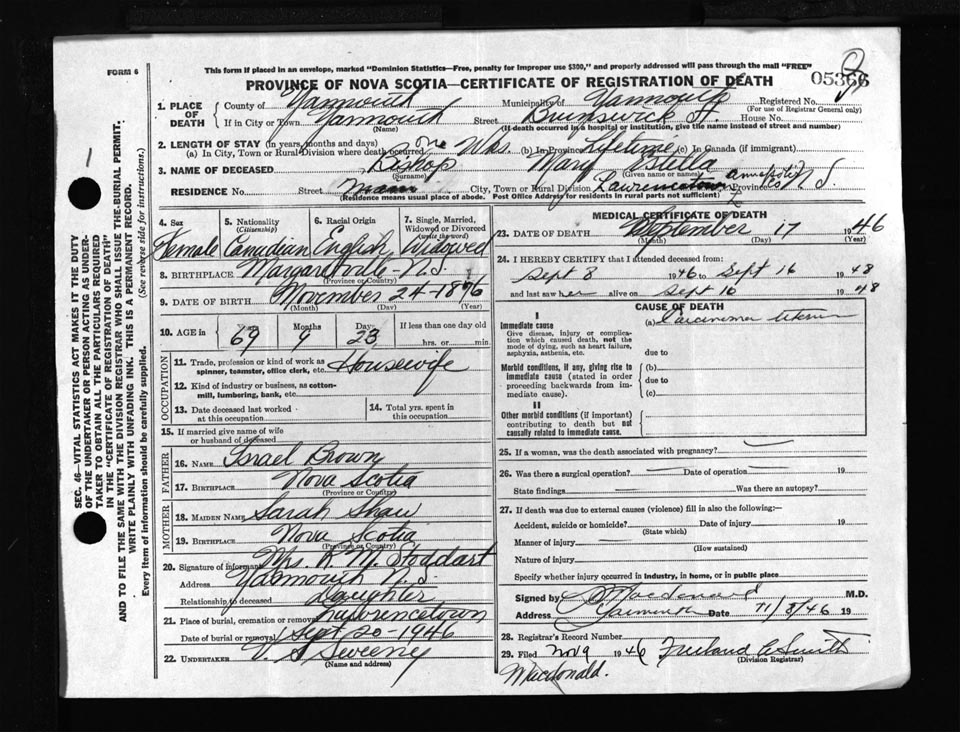 FORM 6
This form if placed in an envelope, marked "Dominion Statistics—Free, penalty for improper use $300," and properly addressed will pass through the mail "FREE"
PROVINCE OF NOVA SCOTIA—CERTIFICATE OF REGISTRATION OF DEATH
05366
SEC. 46—VITAL STATISTICS ACT MAKES IT THE DUTY
OF THE UNDERTAKER OR PERSON ACTING AS UNDER-
TAKER TO OBTAIN ALL THE PARTICULARS REQUIRED
IN THE "CERTIFICATE OF REGISTRATION OF DEATH"
AND TO FILE THE SAME WITH THE DIVISION REGISTRAR WHO SHALL ISSUE THE BURIAL PERMIT.
WRITE PLAINLY WITH UNFADING INK. THIS IS A PERMANENT RECORD.
Every item of information should be carefully supplied. (See reverse side for instructions.)
1. PLACE OF DEATH County of Yarmouth Municipality of Yarmouth Registered No.
(For use of Registrar General only)
If in City or Town Yarmouth Street Brunswick St. House No.
(Name) (If death occurred in a hospital or institution, give the name instead of street and number)
2. LENGTH OF STAY (in years, months and days)
(a) In City, Town or Rural Division where death occurred One Wks. (b) In Province lifetime (c) In Canada (if immigrant)
3. NAME OF DECEASED Bishop Mary Estella
(Surname) (Given name or names)
RESIDENCE No. Street Main City, Town or Rural Division Lawrencetown Province Annapolis Co N.S.
(Residence means usual place of abode. Post Office Address for residents in rural parts not sufficient)
4. Sex Female
5. Nationality (Citizenship) Canadian
6. Racial Origin English
7. Single, Married, Widowed or Divorced (write the word) Widowed
8. BIRTHPLACE Margaretville - N.S.
(Province or Country)
9. DATE OF BIRTH November 24-1876
(Month) (Day) (Year)
10. AGE in 69 Months 9 Days 23 If less than one day old
hrs. or min.
OCCUPATION
11. Trade, profession or kind of work as spinner, teamster, office clerk, etc. Housewife
12. Kind of industry or business, as cotton-mill, lumbering, bank, etc.
13. Date deceased last worked at this occupation
14. Total yrs. spent in this occupation
15. If married give name of wife or husband of deceased
FATHER
16. NAME Israel Brown
17. BIRTHPLACE Nova Scotia
(Province or Country)
MOTHER
18. MAIDEN NAME Sarah Shaw
19. BIRTHPLACE Nova Scotia
(Province or Country)
20. Signature of informant Mrs. R. M. Stoddart
Address Yarmouth N.S.
Relationship to deceased Daughter
21. Place of burial, cremation or removal Lawrencetown
Date of burial or removal Sept 20-1946
22. UNDERTAKER V. S. Sweeny
(Name and address)
MEDICAL CERTIFICATE OF DEATH
23. DATE OF DEATH September 17 1946
(Month) (Day) (Year)
24. I HEREBY CERTIFY that I attended deceased from:
Sept 8 1946 to Sept 16 1948
and last saw her alive on Sept 16 1948
CAUSE OF DEATH
I
Immediate cause (a) Carcinoma Uterus
Give disease, injury or complication which caused death, not the mode of dying, such as heart failure, asphyxia, asthenia, etc.
due to
Morbid conditions, if any, giving rise to immediate cause (stated in order proceeding backwards from immediate cause).
(b)
due to
(c)
II
Other morbid conditions (if important) contributing to death but not causally related to immediate cause.
25. If a woman, was the death associated with pregnancy?
26. Was there a surgical operation? Date of operation 19
State findings Was there an autopsy
27. If death was due to external causes (violence) fill in also the following:—
Accident, suicide or homicide? Date of injury 19
(State which)
Manner of injury
(How sustained)
Nature of injury
Specify whether injury occurred in industry, in home, or in public place
Signed by Macdonald M.D.
Address Yarmouth Date 11/8/46 19
28. Registrar's Record Number
29. Filed Nov 9 1946 Freeland C Smith
(Division Registrar)
Macdonald.